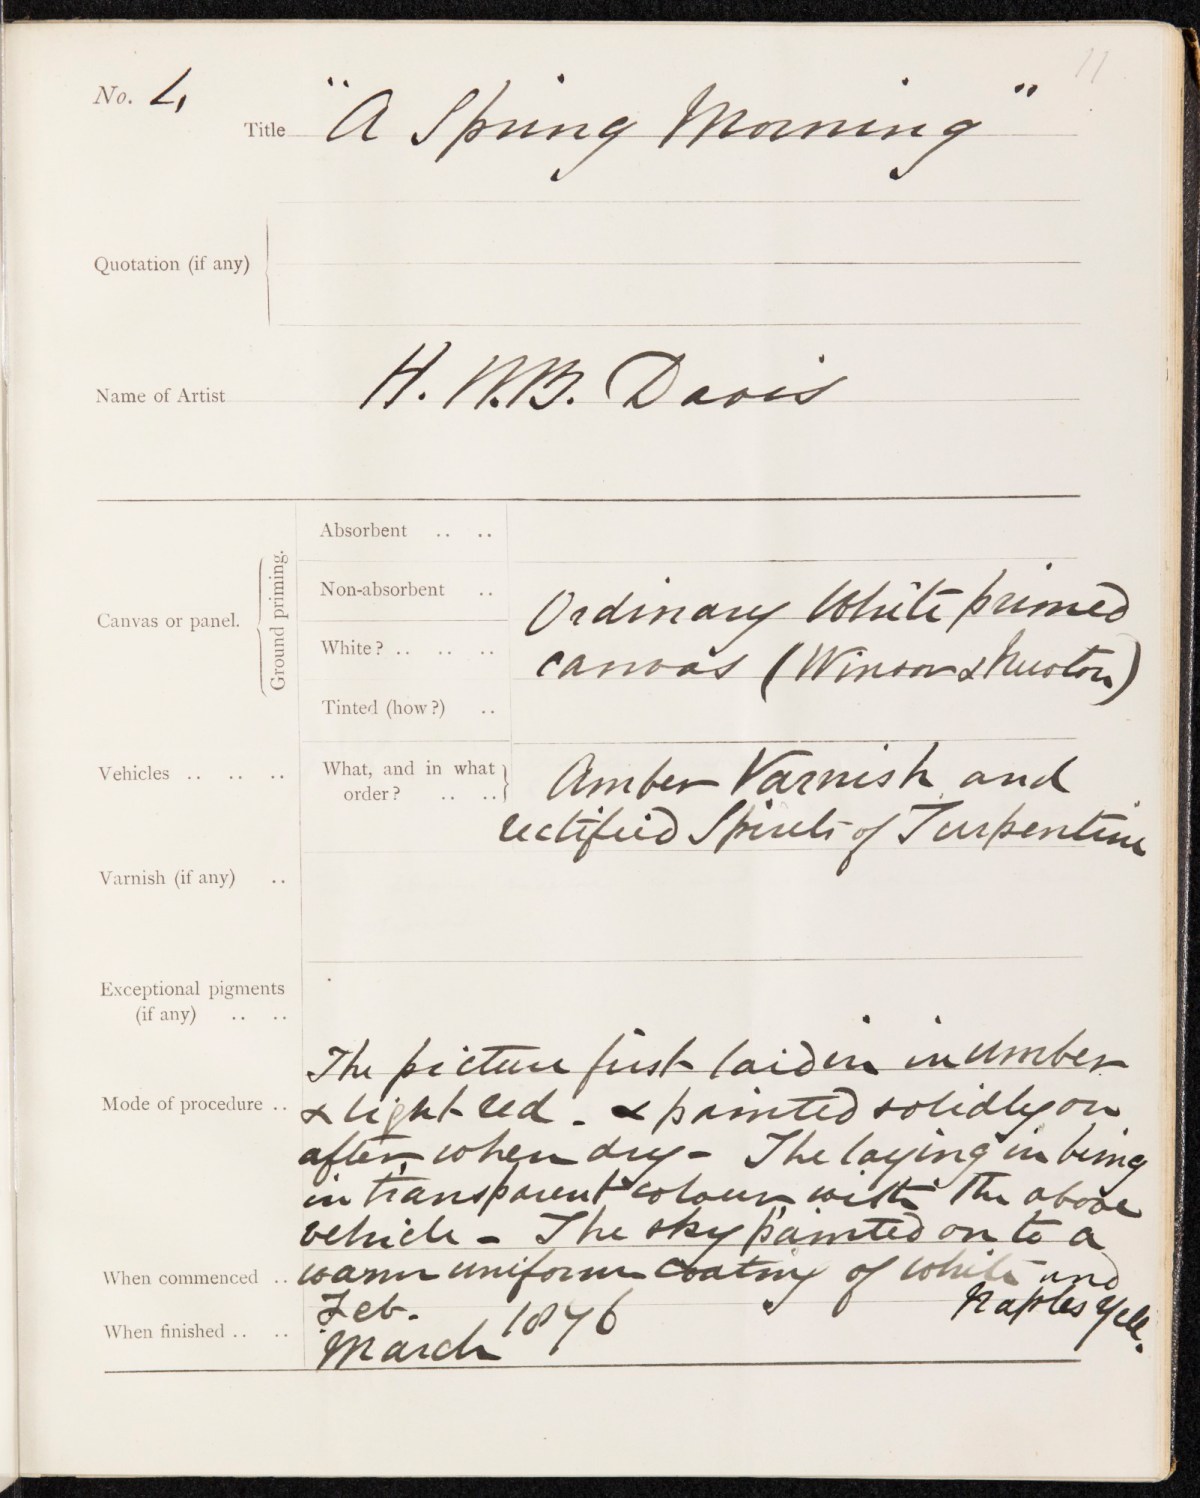 11
No. 4,
Title "A Spring Morning"
Quotation (if any)
Name of Artist H. W.B. Davis
Canvas or panel.
Ground priming.
Absorbent .. ..
Non-absorbent ..
White? .. .. ..
Tinted (how?) ..
Ordinary White primed
canvas (Winsor & Newton)
Vehicles .. .. ..
What, and in what
order? .. ..
Amber Varnish and
rectified Spirits of Turpentine
Varnish (if any) ..
Exceptional pigments
(if any) .. ..
Mode of procedure ..
The picture first laid in in umber
& light red - & painted solidly on
after when dry - The laying in being
in transparent colour with the above
vehicle - The sky painted on to a
warm uniform coating of white and
Naples Yell.
When commenced .. Feb. 1876
When finished .. .. March